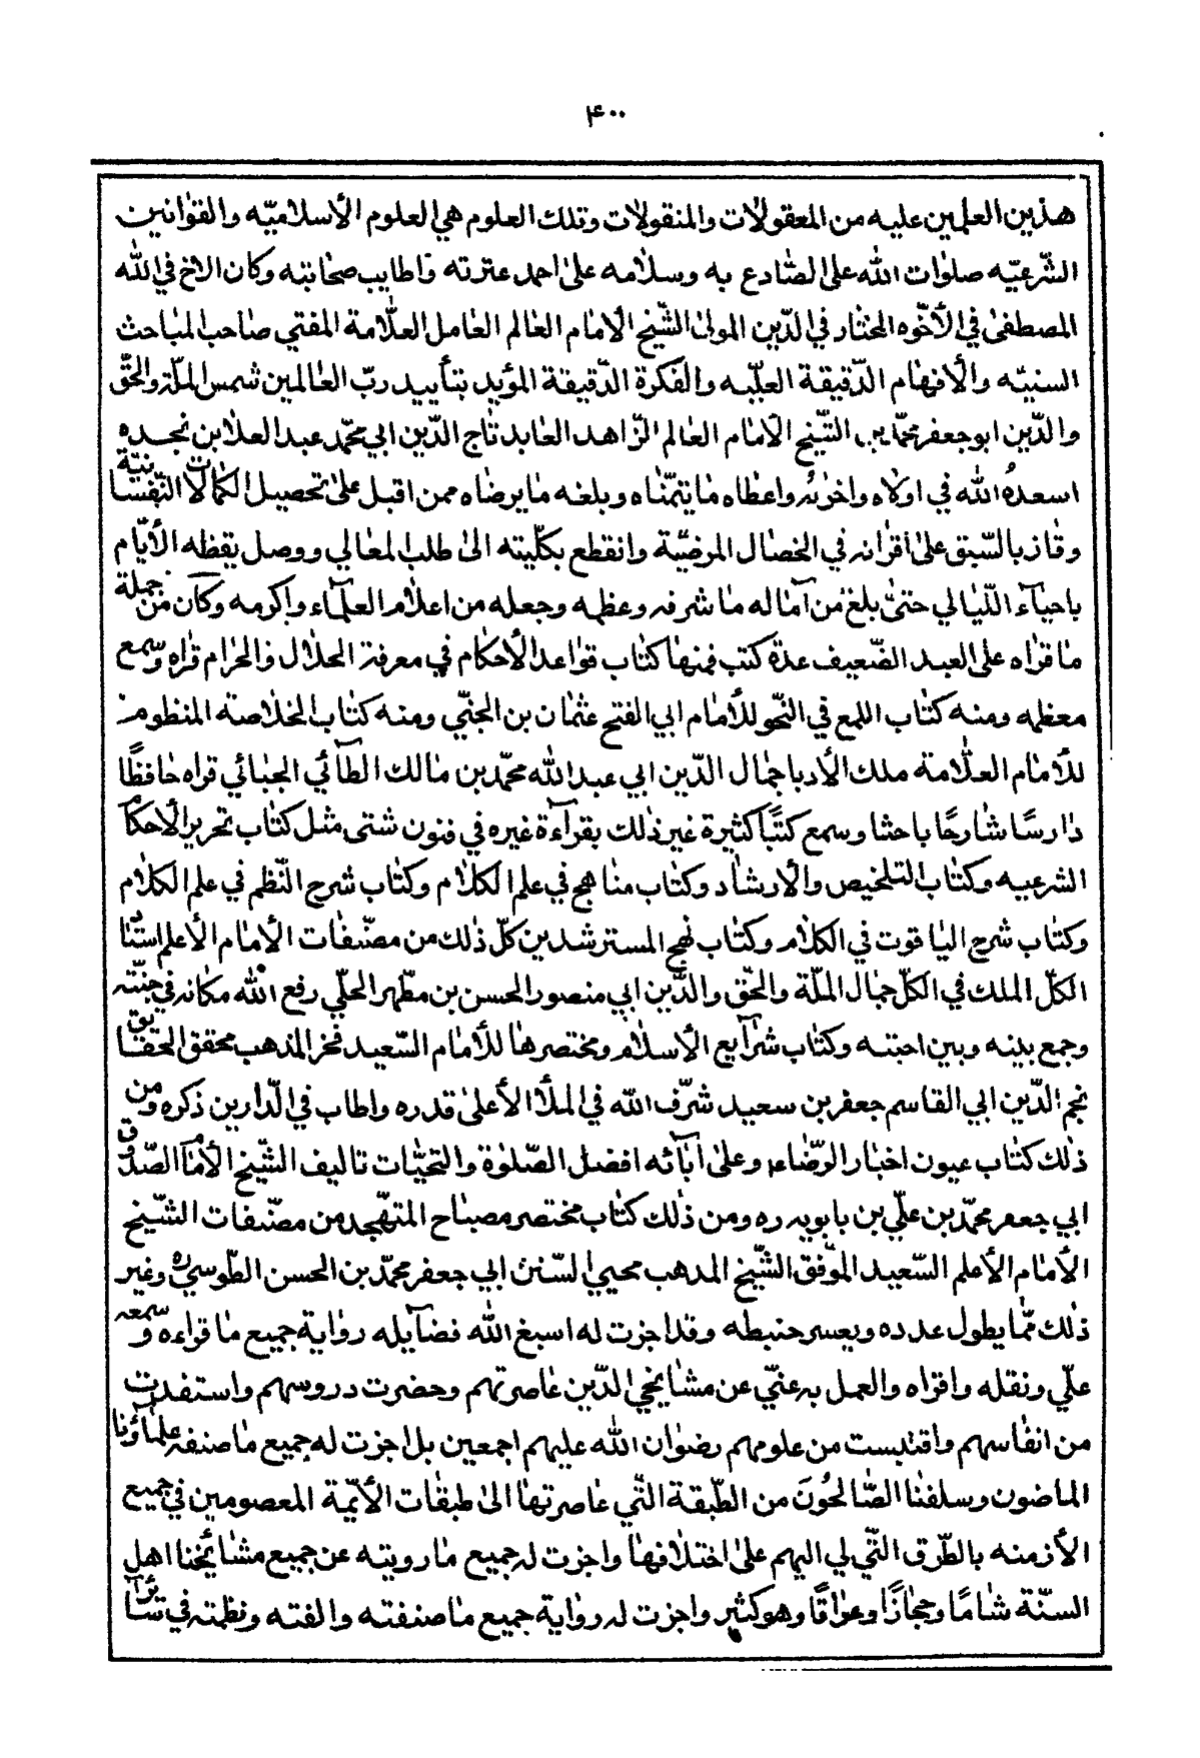 ۴۰۰
هذين العلمين عليه من المعقولات والمنقولات وتلك العلوم هي العلوم الأسلاميّه والقوانين
الشّرعيّه صلوات الله على الصّادع به وسلامه على احمد عترته واطايب صحابته وكان الاخ في الله
المصطفى في الأخّوه المختار في الدّين المولى الشّيخ الامام العالم العامل العلّامة المفتي صاحب المباحث
السنيّه والأفهام الدّقيقة العليّه والفكرة الدّقيقة المؤيد بتأييد ربّ العالمين شمس الملّة والحقّ
والدّين ابو جعفر محمّد بن الشّيخ الامام العالم الزّاهد العابد تاج الدّين ابي محمّد عبد العلا بن نجده
اسعده الله في اولاه واخرىه واعطاه ما يتمنّاه وبلغه ما يرضاه ممن اقبل على تحصيل الكمالات النّفسانيّة
وفاز بالسّبق على اقرانه في الخصال المرضيّة وانقطع بكلّيته الى طلب المعالي ووصل يقظه الأيّام
باحياء اللّيالي حتى بلغ من آماله ما شرفه وعظمه وجعله من اعلام العلمآء واكرمه وكان من جملة
ما قراه على العبد الضّعيف عدة كتب فمنها كتاب قواعد الأحكام في معرفة الحلال والحرام قراه وسمع
معظمه ومنه كتاب اللمع في النّحو للأمام ابي الفتح عثمان بن الجنّي ومنه كتاب الخلاصة المنظومة
للأمام العلّامة ملك الأدبا جمال الدّين ابي عبد الله محمّد بن مالك الطآئي الجبائي قراه حافظًا
دارسًا شارحًا باحثا وسمع كتبًا كثيرة غير ذلك بقرآءة غيره في فنون شتى مثل كتاب تحرير الأحكام
الشرعيه وكتاب التلخيص والأرشاد وكتاب مناهج في علم الكلام وكتاب شرح النّظم في علم الكلام
وكتاب شرح الياقوت في الكلام وكتاب نهج المسترشدين كلّ ذلك من مصنّفات الأمام الأعلم استاد
الكلّ الملك في الكلّ جمال الملّة والحّق والدّين ابي منصور الحسن بن مطّهر الحلّي رفع الله مكانه في جنّته
وجمع بينه وبين احبته وكتاب شرآيع الأسلام ومختصرها للأمام السّعيد فخر المذهب محقق الحقايق
نجم الدّين ابي القاسم جعفر بن سعيد شرّف الله في الملأ الأعلى قدره واطاب في الدّارين ذكره ومن
ذلك كتاب عيون اخبار الرضاء وعلى آبآئه افضل الصّلوة والتحيّات تاليف الشّيخ الأمام الصّدوق
ابي جعفر محمّد بن علّي بن بابويه ره ومن ذلك كتاب مختصر مصباح المتهّجد من مصنّفات الشّيخ
الأمام الأعلم السّعيد الموّفق الشّيخ المذهب محيي السّنن ابي جعفر محمّد بن الحسن الطّوسي ره وغير
ذلك ممّا يطول عدده ويعسر حنبطه وقد اجزت له اسبغ الله فضآيله رواية جميع ما قراءه وسمعه
علّي ونقله واقراه والعمل به عنّي عن مشايخي الدّين عاصرتهم وحضرت دروسهم واستفدت
من انفاسهم واقتبست من علومهم رضوان الله عليهم اجمعين بل اجزت له جميع ما صنفه علماؤنا
الماضون وسلفنا الصّالحون من الطّبقة التّي عاصرتها الى طبقات الأئمّة المعصومين في جميع
الأزمنه بالطّرق التّي لي اليهم على اختلافها واجزت له جميع ما رويته عن جميع مشائخنا اهل
السنّة شامًا وحجازًا وعراقًا وهو كثير واجزت له رواية جميع ما صنفته والفته ونظمته في